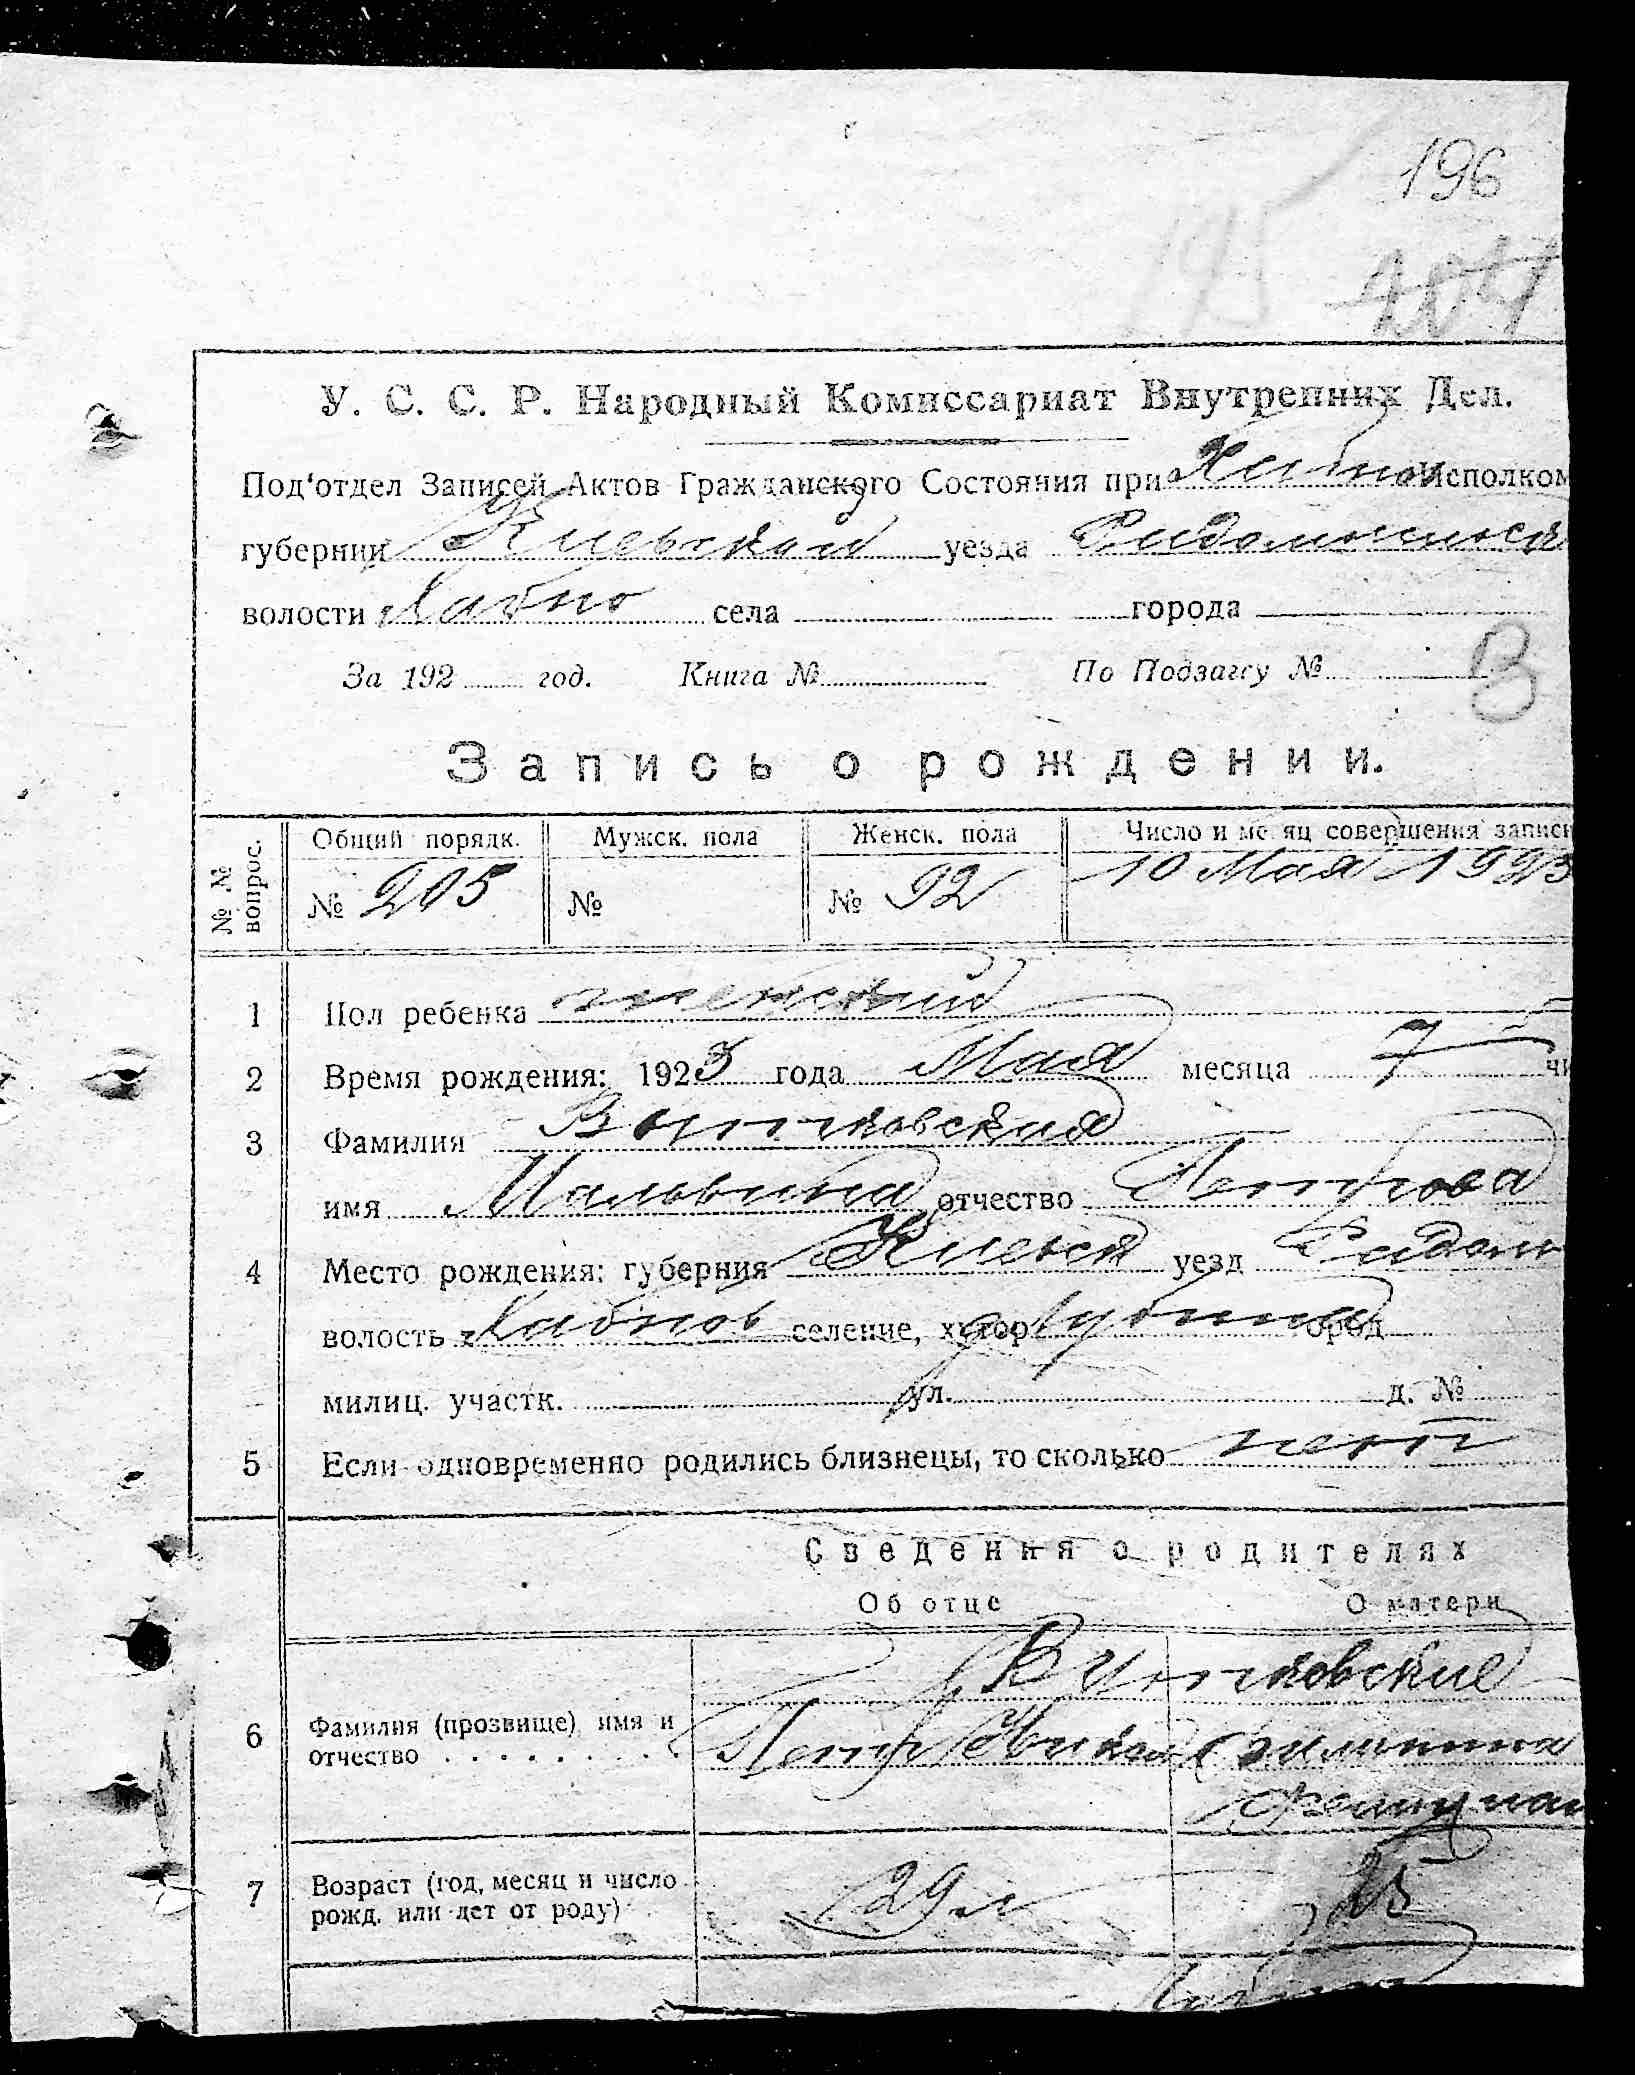 196
195
У. С. С. Р. Народный Комиссариат Внутренних Дел.
Под‘отдел Записей Актов Гражданского Состояния при Хабно Исполком
губернии Киевской уезда Радомысльск
волости Хабно села города
За 192 год. Книга № По Подзагсу №
В
Запись о рождении.
№ № вопрос.
Общий порядк. Мужск. пола Женск. пола Число и месяц совершения записи
№ 205 № № 92 10 Мая 1923
1 Пол ребенка женский
2 Время рождения: 1923 года Мая месяца 7 чи
3 Фамилия Витковская
имя Мальвина отчество Петрова
4 Место рождения: губерния Киевск уезд Радом
волость Хабнов селение, хутор город
милиц. участк. ул. д. №
5 Если одновременно родились близнецы, то сколько нет
Сведения о родителях
Об отце О матери
Витковские
6 Фамилия (прозвище) имя и
отчество Петр
7 Возраст (год, месяц и число
рожд. или лет от роду) 29 л 25